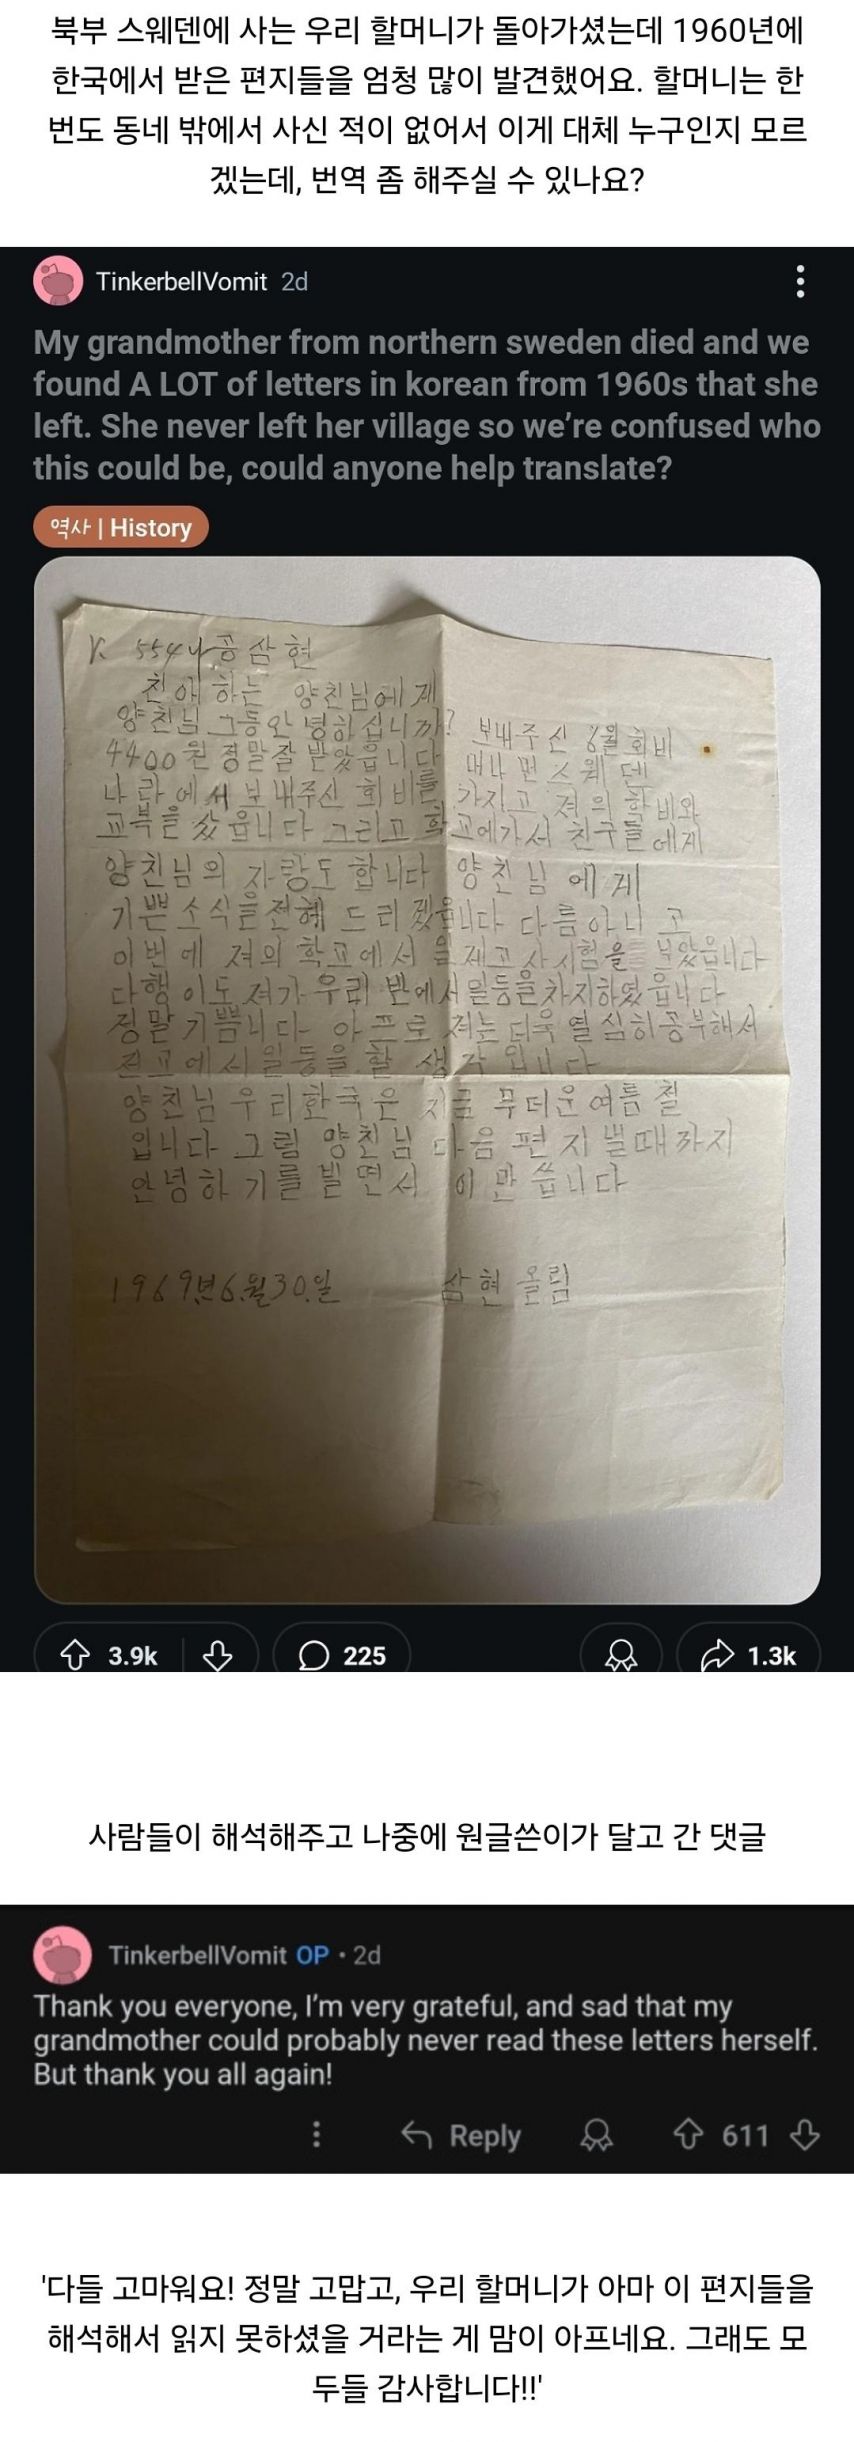 북부 스웨덴에 사는 우리 할머니가 돌아가셨는데 1960년에
한국에서 받은 편지들을 엄청 많이 발견했어요. 할머니는 한
번도 동네 밖에서 사신 적이 없어서 이게 대체 누구인지 모르
겠는데, 번역 좀 해주실 수 있나요?
TinkerbellVomit 2d
My grandmother from northern sweden died and we
found A LOT of letters in korean from 1960s that she
left. She never left her village so we’re confused who
this could be, could anyone help translate?
역사 | History
554 공삼현
친애하는 양친님에게
양친님 그동안 녕하십니까? 보내주신 6월회비
4400원 정말잘 받았읍니다 머나먼 스웨덴
나라에서 보내주신 회비를 가지고 져의 학비와
교복을 샀읍니다 그리고 학교에가서 친구들에게
양친님의 자랑도 합니다 양친님에게
기쁜소식을전해 드리겠읍니다 다름아니고
이번에 져의 학교에서 일제고사시험을
다행이도 져가 우리 반에서일등을차지하였읍니다
정말기쁩니다 아프로 져는 더욱 열심히공부해서
전교에서일등을 할 생각입니다
양친님 우리한국은 지금 무더운여름철
입니다 그럼 양친님 다음 편지 때까지
안녕하기를 빌면서 이만 씁니다
1969년6월30일 삼현 올림
3.9k 225 1.3k
사람들이 해석해주고 나중에 원글쓴이가 달고 간 댓글
TinkerbellVomit OP • 2d
Thank you everyone, I’m very grateful, and sad that my
grandmother could probably never read these letters herself.
But thank you all again!
Reply 611
'다들 고마워요! 정말 고맙고, 우리 할머니가 아마 이 편지들을
해석해서 읽지 못하셨을 거라는 게 맘이 아프네요. 그래도 모
두들 감사합니다!!'